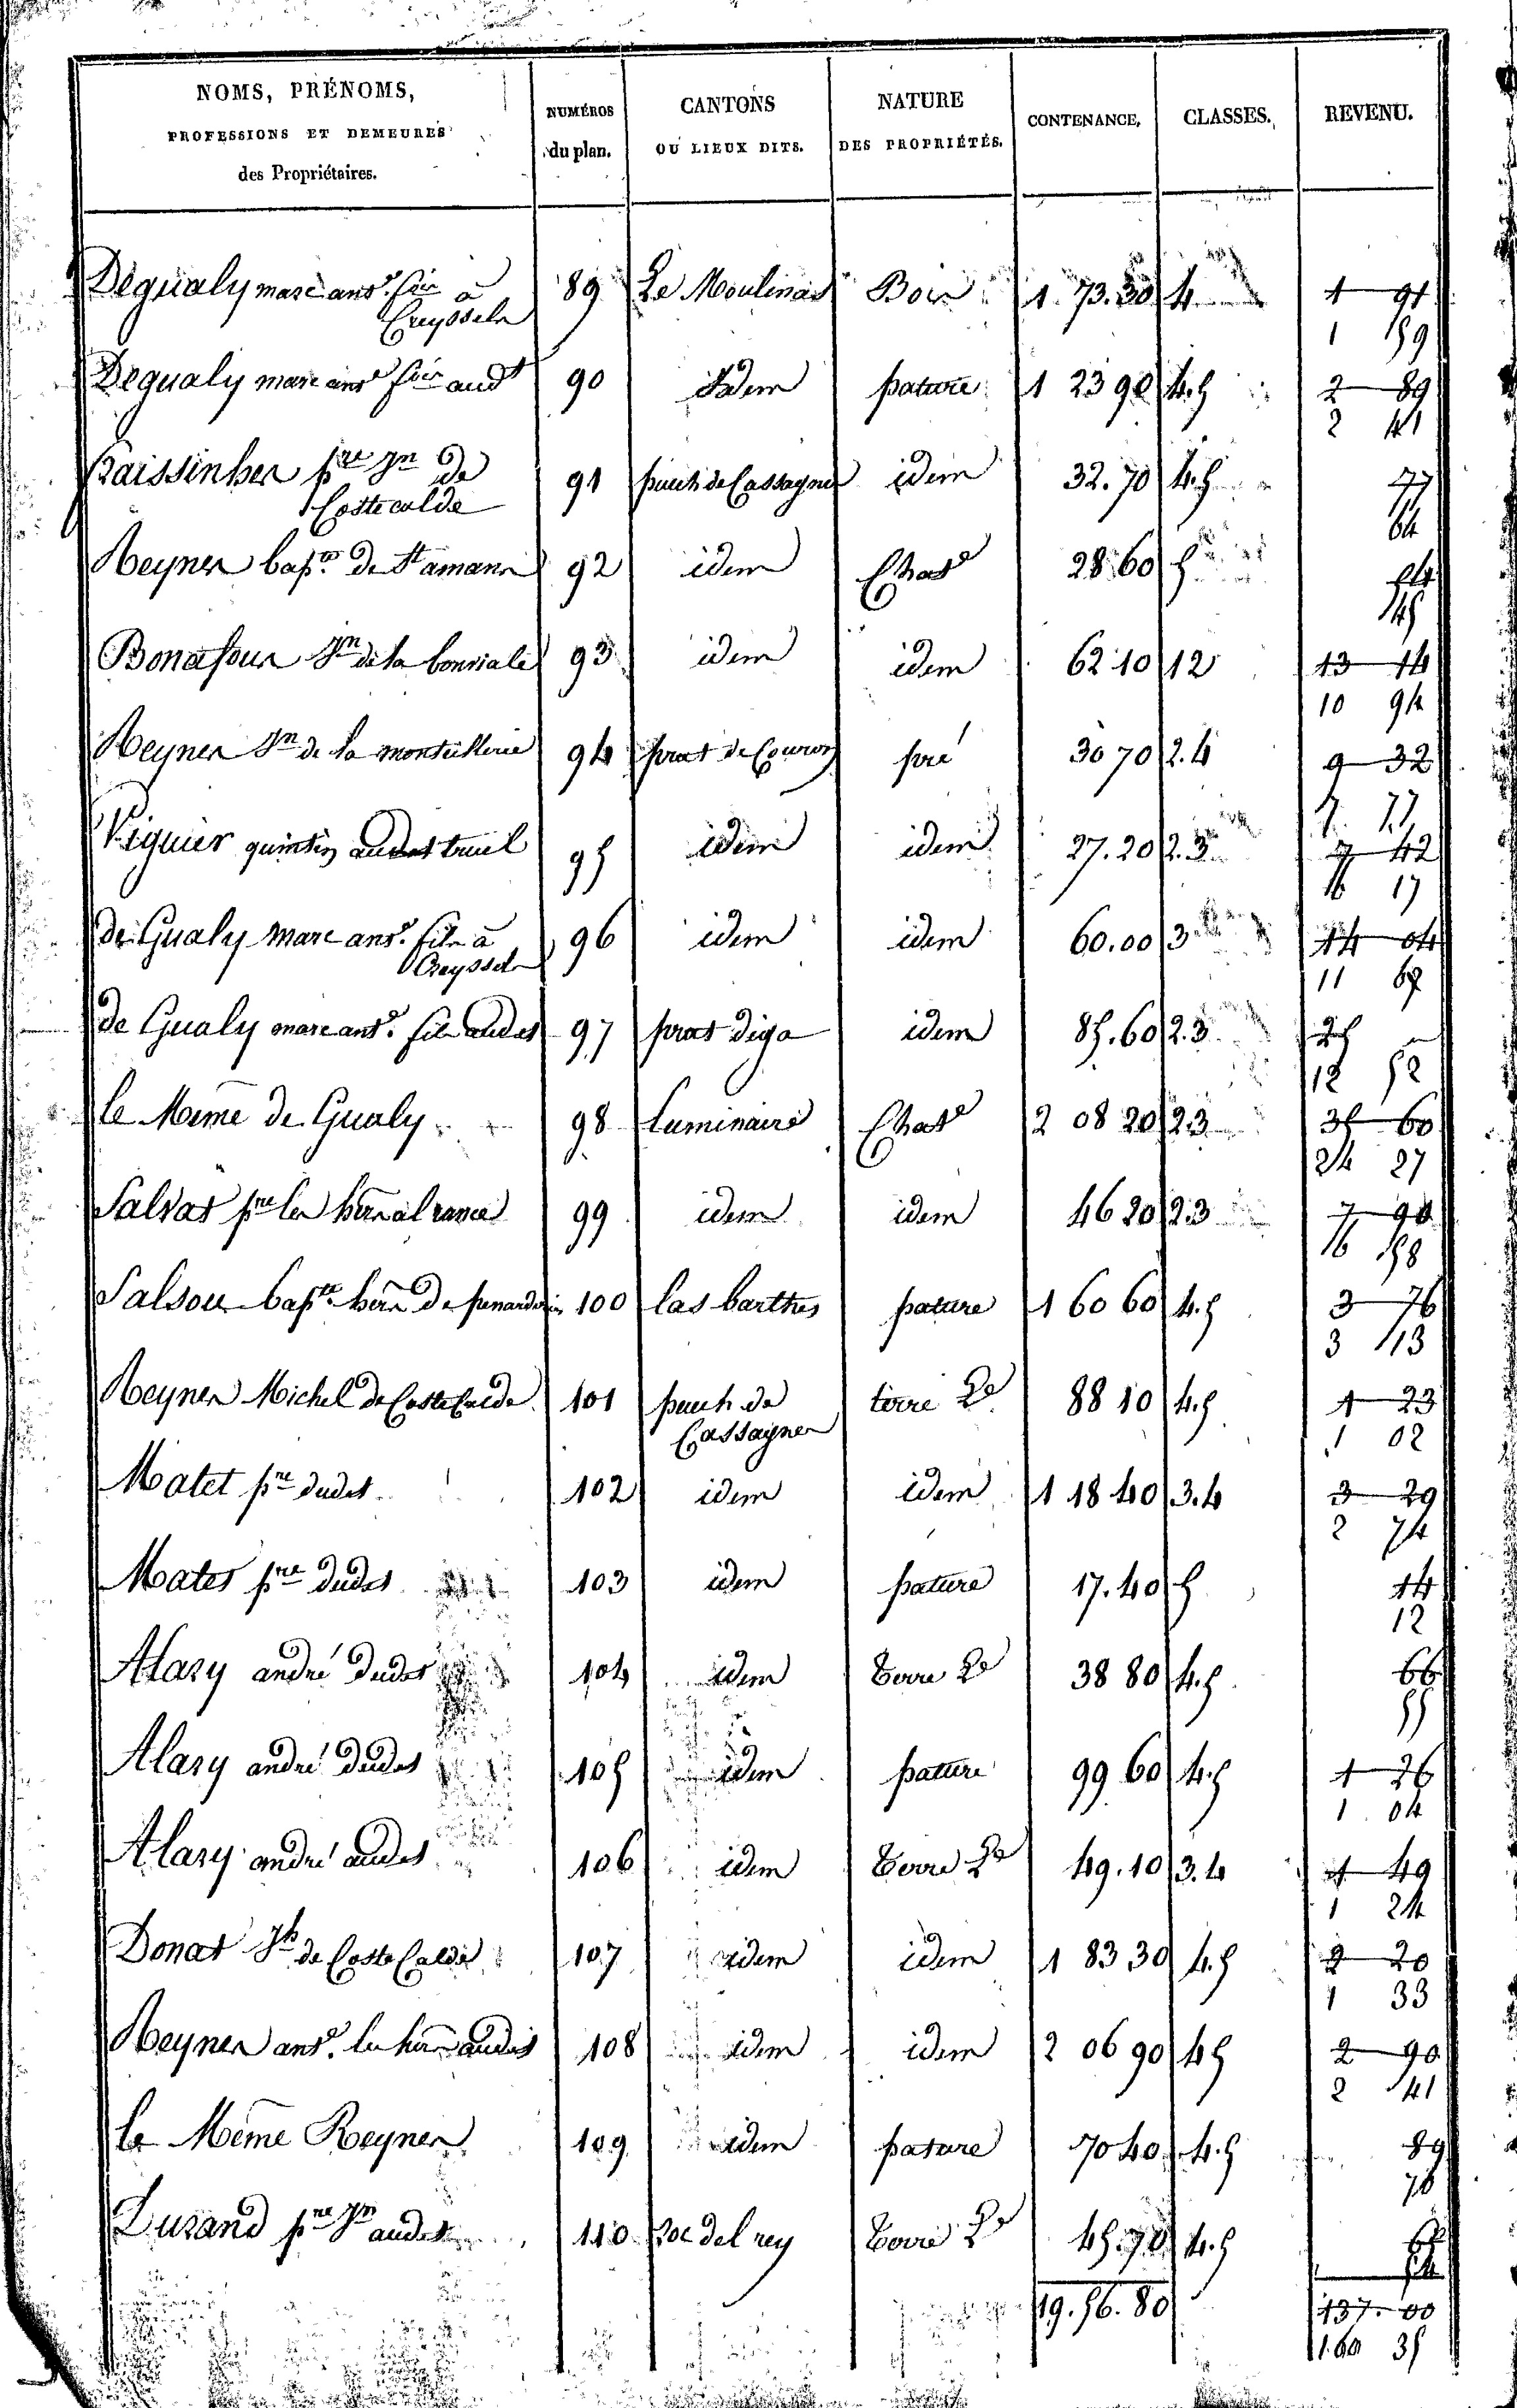 NOMS, PRÉNOMS,
PROFESSIONS ET DEMEURES
des Propriétaires.
NUMÉROS
du plan.
CANTONS
OU LIEUX DITS.
NATURE
DES PROPRIÉTÉS.
CONTENANCE.
CLASSES.
REVENU.
Dequaly marc ant.e à 89 Le Moulinas Bois 1. 73. 30 4 1 91
Creyssels 1 59
Dequaly marc ant.e audt 90 Idem pature 1 23 90 4.5 2 89
2 41
Raissinher pre Jn de 91 puech de Cassagnes idem 32. 70 4.5 77
Costecalde 64
Reynes bapte de St amans 92 idem Chat 28. 60 5 54
45
Bonafour Jn de la bouriale 93 idem idem 62 10 12 13 14
10 94
Reynes Jn de la 94 prat de pré 30 70 2.4 9 32
7. 77
Viguier quintin audt truel 95 idem idem 27. 20 2.3 7 42
6 17
de Gualy Marc ant.e fils à 96 idem idem 60. 00 3 14 04
Creyssels 11 67
de Gualy marc ant.e fils audt 97 prat idem 85. 60 2.3 25
18 52
le Même de Gualy 98 Luminaire Chat 2 08 20 2.3 35 60
24 27
Salvat pre les 99 idem idem 46 20 2.3 7 90
6 58
Salson bapte 100 las barthes pature 1 60 60 4.5 3 76
3 13
Reynes Michel de Costecalde 101 puech de terre 88 10 4.5 1 23
Cassagnes 1 02
Matet pre dudt 102 idem idem 1 18 40 3.4 3 29
2 74
Matet pre dudt 103 idem pature 17. 40 5 14
12
Alary andré dudt 104 idem terre 38 80 4.5 66
55
Alary andré dudt 105 idem pature 99 60 4.5 1 26
1 04
Alary andré audt 106 idem terre 49. 10 3.4 1 49
1 24
Donat Jh de Coste Calde 107 idem idem 1 83 30 4.5 2 20
1 33
Reynes ant.e les audt 108 idem idem 2 06 90 4 5 2 90
2 41
le Même Reynes 109 idem pature 70 40 4.5 89
Durand pre Jn audt 110 roc del rey terre 45. 70 4.5
54
19. 56. 80 137. 00
35